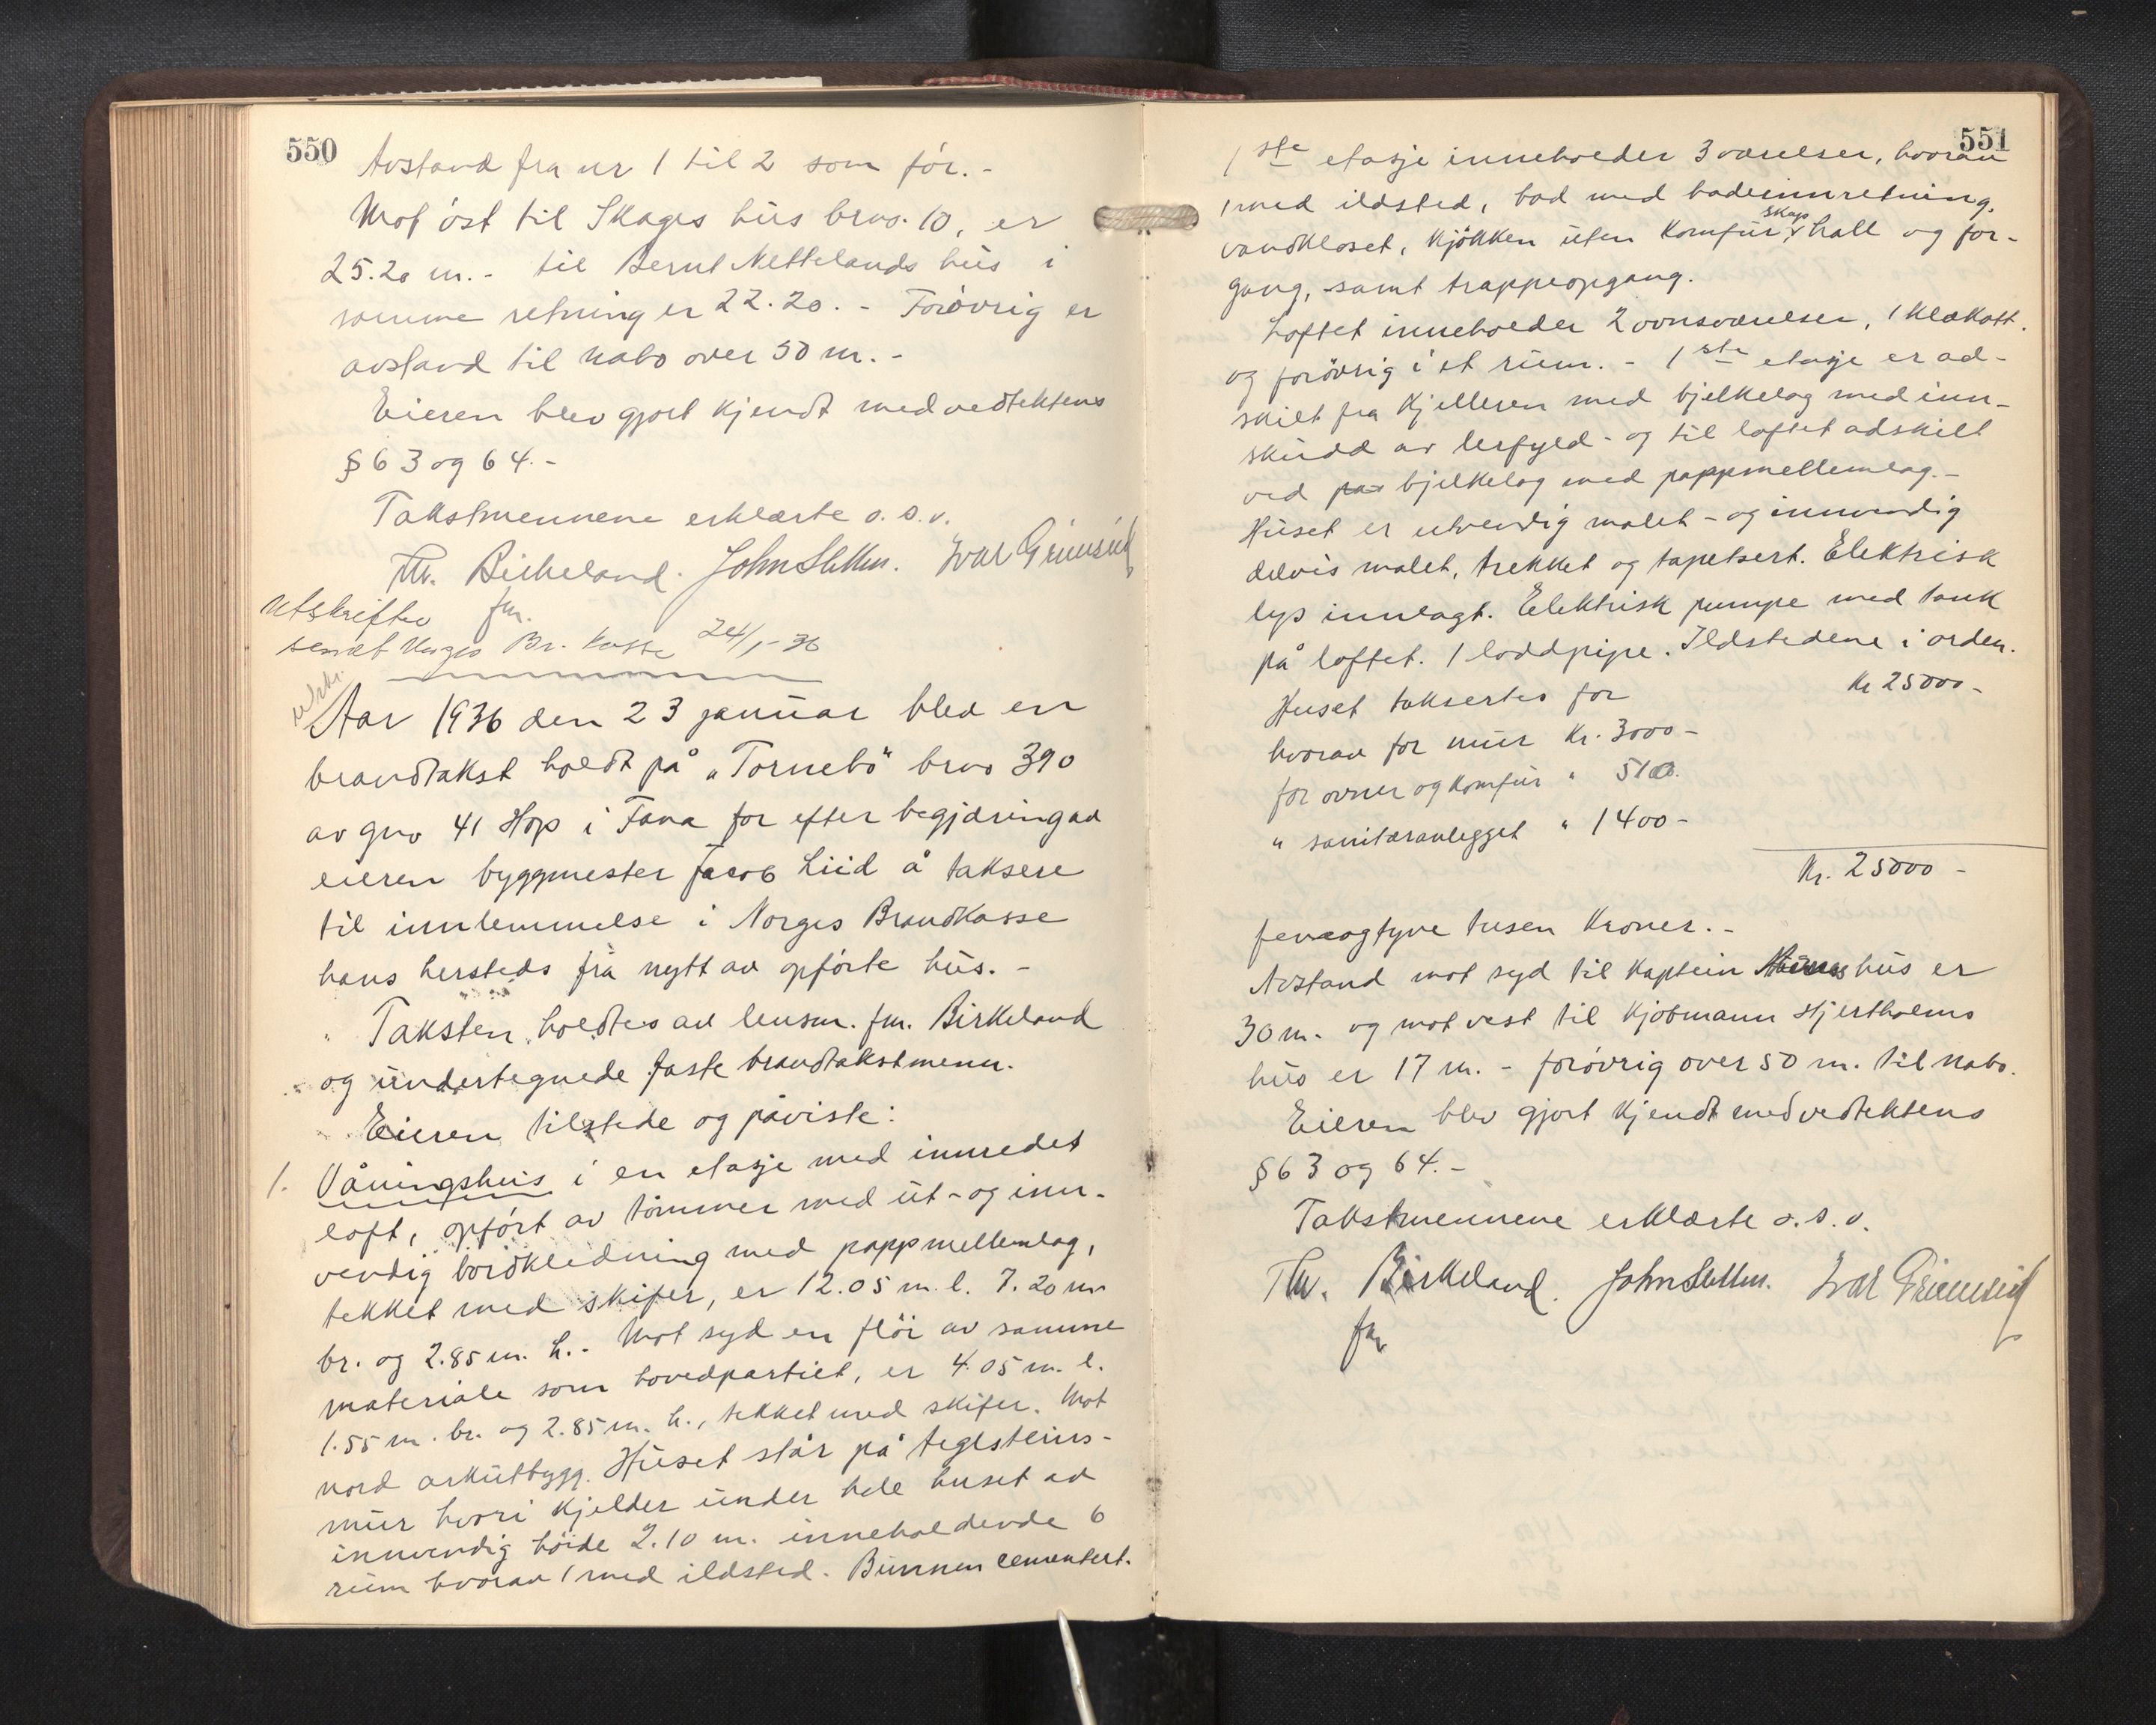 550
Avstand fra nr 1 til 2 som för. -
Mot öst til Skages hus brno. 10, er
25.20 m. - til Bernt Nettelands hus i
samme retning er 22.20. - Forövrig er
avstand til nabo over 50 m. -
Eieren blev gjort kjendt med vedtektens
§ 63 og 64. -
Takstmennene erklærte o. s. v.
Th. Birkeland. John Sletten. Ivar Grimseid
fm.
Utskrifter
sendt Norges Br. kasse 24/1-36
utskr.
Aar 1936 den 23 januar blev en
brandtakst holdt på "Tornebö" brno 390
av gno 41 Hop i Fana for efter begjæring av
eieren byggmester Jacob Liid å taksere
til innlemmelse i Norges Brandkasse
hans hersteds fra nytt av opförte hus. -
Taksten holdtes av lensm. fm. Birkeland
og undertegnede faste brandtakstmenn.
Eieren tilstede og påviste:
1. Våningshus i en etasje med innredet
loft, opfört av tömmer med ut- og inn-
vendig bordkledning med pappmellemlag,
tekket med skifer, er 12.05 m. l. 7.20 m
br. og 2.85 m. h. - Mot syd en flöi av samme
materiale som hovedpartiet, er 4.05 m. l.
1.55 m. br. og 2.85 m. h., tekket med skifer. Mot
nord arkutbygg. Huset står på teglsteins-
mur hvori kjelder under hele huset av
innvendig höide 2.10 m. inneholdende 6
rum hvorav 1 med ildsted. Bunnen cementert.
551
1ste etasje inneholder 3 værelser, hvorav
1 med ildsted, bad med badeinnretning,
vandkloset, kjökken uten komfur, skap hall og for-
gang, samt trappeopgang.
Loftet inneholder 2 ovnsværelser, 1 klækott.
og forövrig i et rum. - 1ste etasje er ad-
skilt fra kjelleren med bjelkelag med inn-
skudd av lerfyld - og til loftet adskilt
ved bjelkelag med pappmellemlag. -
Huset er utvendig malet - og innvendig
delvis malet, trekket og tapetsert. Elektrisk
lys innlagt. Elektrisk pumpe med tank
på loftet. 1 loddpipe. Ildstedene i orden.
Huset taksertes for Kr 25000 -
hvorav for mur Kr. 3000 -
for ovner og komfur " 510.
" sanitæranlegget " 1400 -
Kr. 25000 -
femogtyve tusen Kroner. -
Avstand mot syd til Kaptein hus er
30 m. og mot vest til Kjöbmann Hjertholms
hus er 17 m. - forövrig over 50 m. til nabo.
Eieren blev gjort kjendt med vedtektens
§ 63 og 64. -
Takstmennene erklærte o. s. v.
Th. Birkeland. John Sletten. Ivar Grimseid
fm